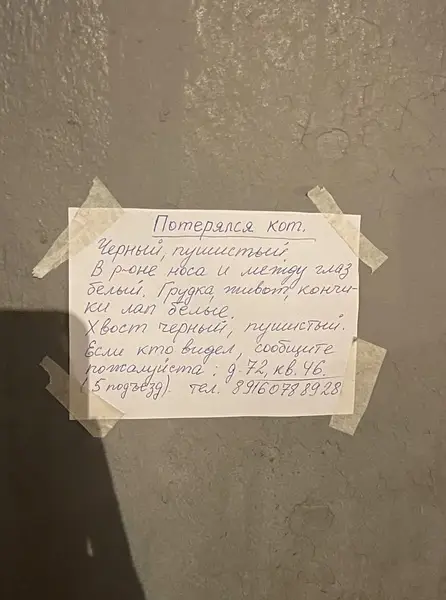 Потерялся кот.
Черный, пушистый.
В р-оне носа и между глаз
белый. Грудка, живот, кончи-
ки лап белые.
Хвост черный, пушистый.
Если кто видел, сообщите
пожалуйста: д. 72, кв. 46.
(5 подъезд). тел. 89160788928